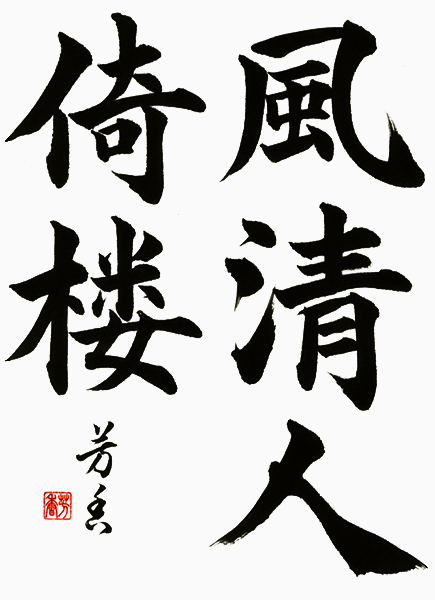 風清人
倚楼
芳香